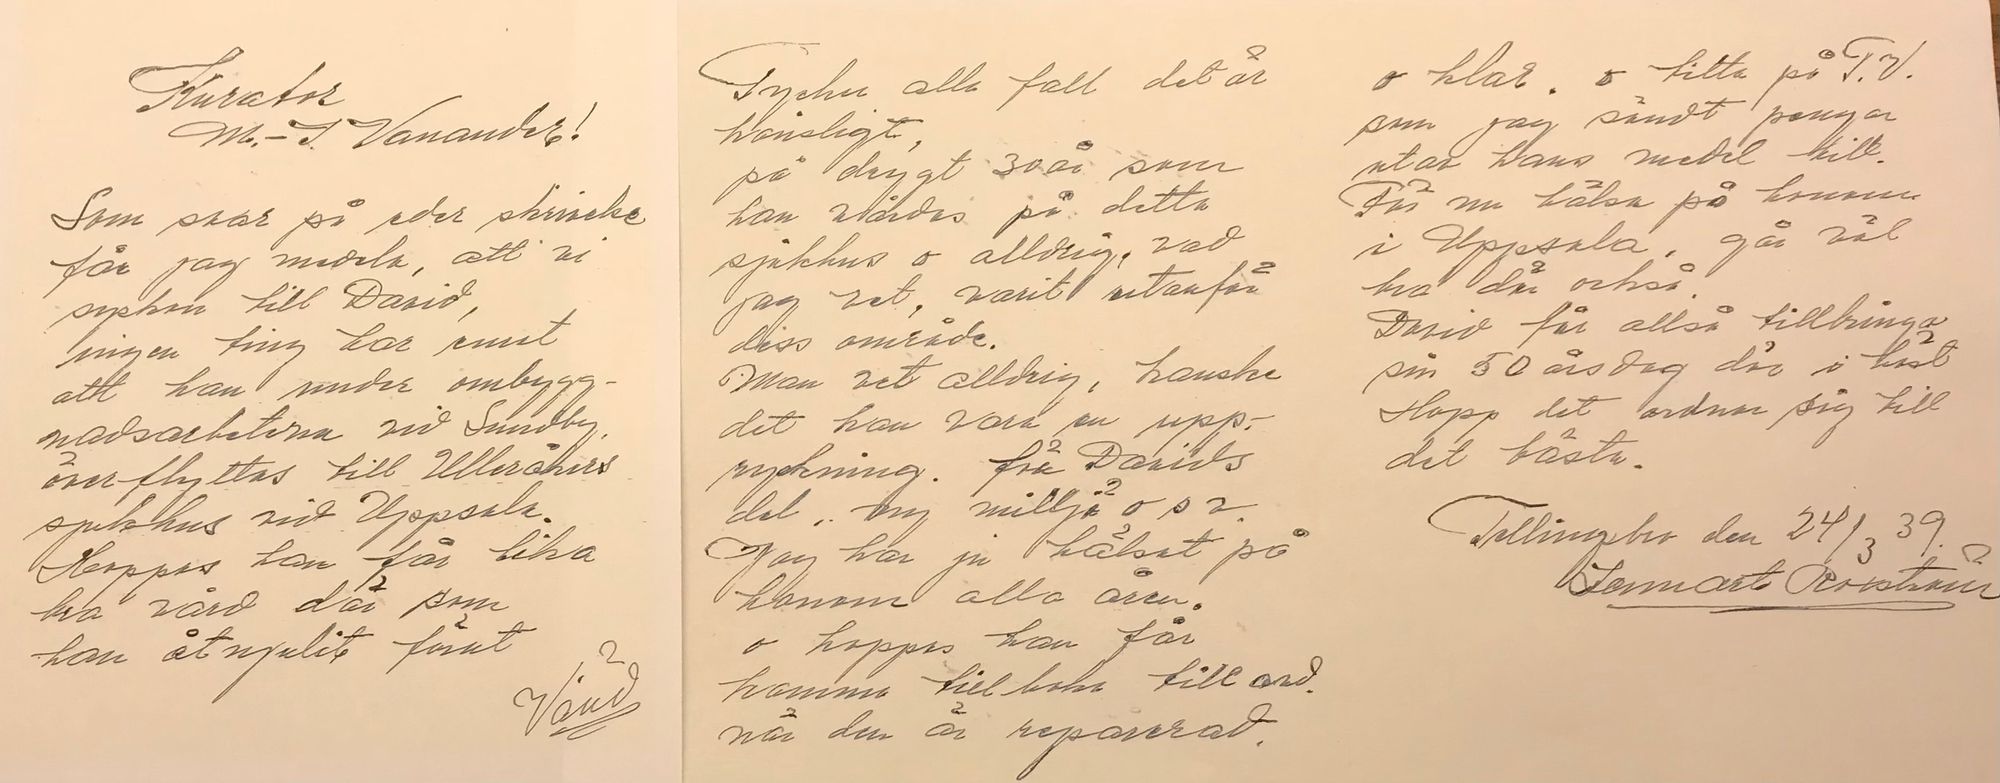 Kurator
M.-I. Vanander!
Som svar på eder skrivelse
får jag medela, att vi
syskon till David,
ingen ting har emot
att han under ombygg-
nadsarbetena vid Sundby.
överflyttas till Ulleråkers
sjukhus vid Uppsala.
Hoppas han får lika
bra vård där som
han åtnjutit förut
Vänd
Tycker alla fall det är
känsligt,
på drygt 30 år som
han vårdas på detta
sjukhus o alldrig, vad
jag vet, varit utanför
dess område.
Man vet alldrig, kanske
det kan vara en upp-
ryckning. för Davids
del, ny milljö o s v.
Jag har ju hälsat på
honom alla åren.
o hoppas han får
komma tillbaka till avd.
när den är reparerad.
o klar. o titta på T.V.
som jag sändt pengar
utav hans medel till.
Får nu hälsa på honom
i Uppsala, går väl
bra där också.
David får alltså tillbringa
sin 50 årsdag där i höst
Hopp det ordnar sig till
det bästa.
Tellingsbro den 24/3 39.
Lennart